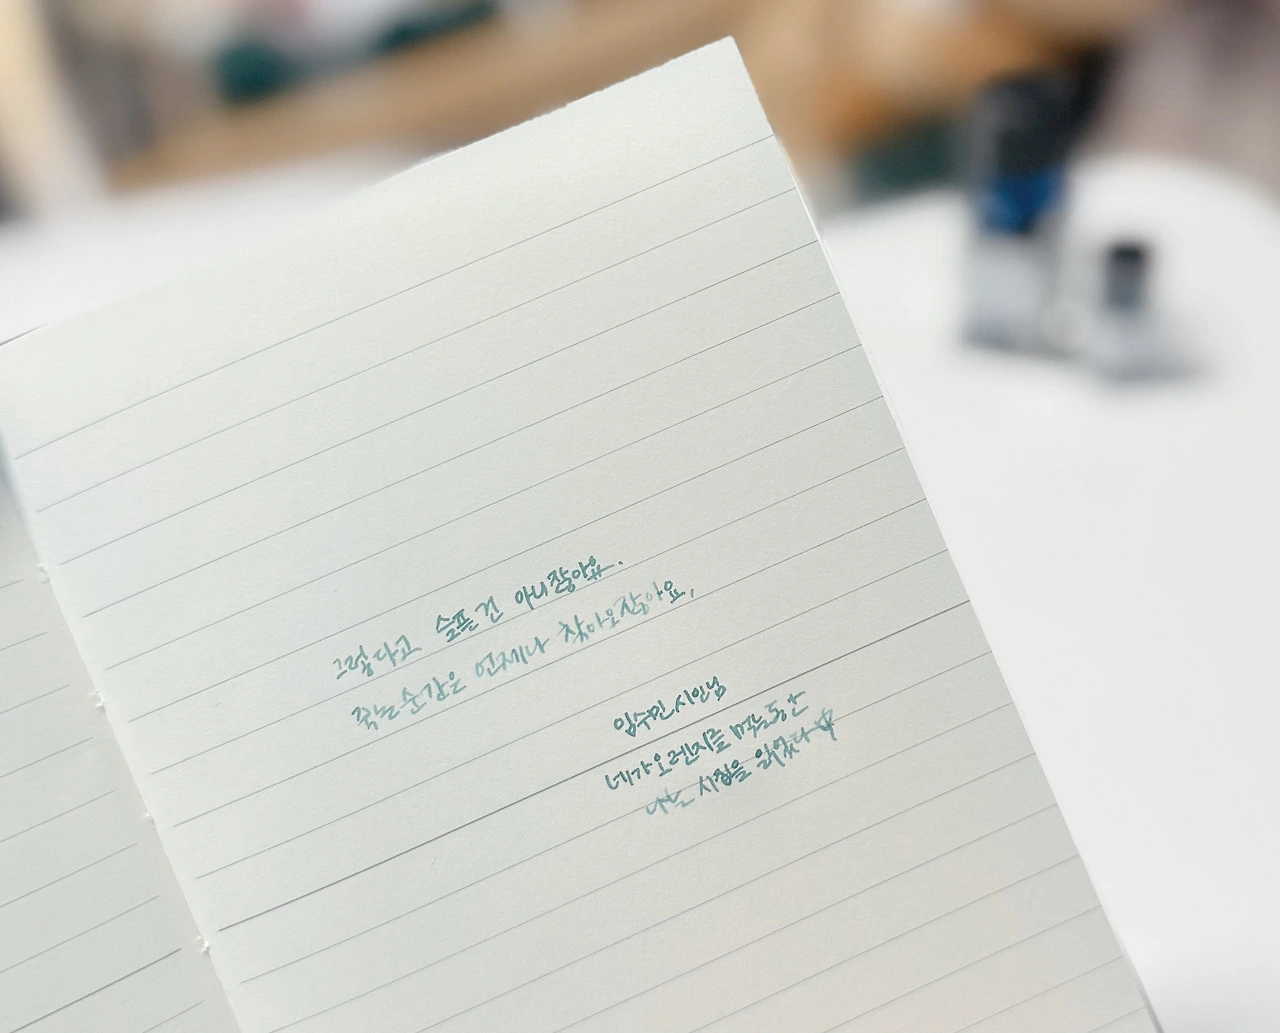 그렇다고 슬픈 건 아니잖아요.
죽는 순간은 언제나 찾아오잖아요,
임수민 시인님
네가 오렌지를 먹는 동안
나는 시집을 읽었다 ☆